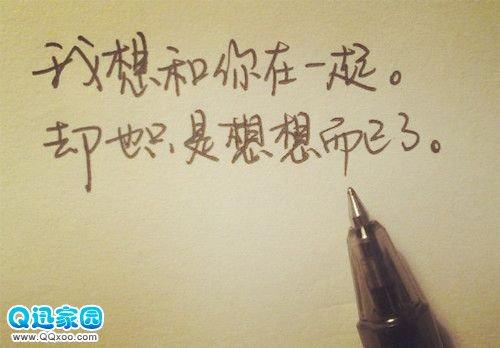 我想和你在一起。
却也只是想想而已了。
Q迅家园
www.QQxoo.com